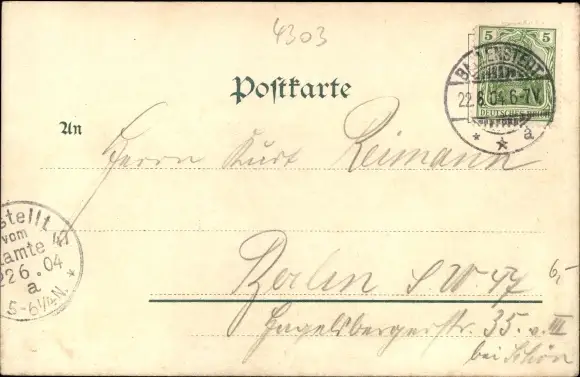 4303
5 5
DEUTSCHES REICH
BALLENSTEDT
22.6.04.6-7V.
* * a
Postkarte
An
Herrn Kurt Reimann
stellt
vom
amte 47
22 6.04
a *
5-6¼N.
Berlin S.W.47
6,-
Hagelsbergerstr. 35. v. III
bei Schön